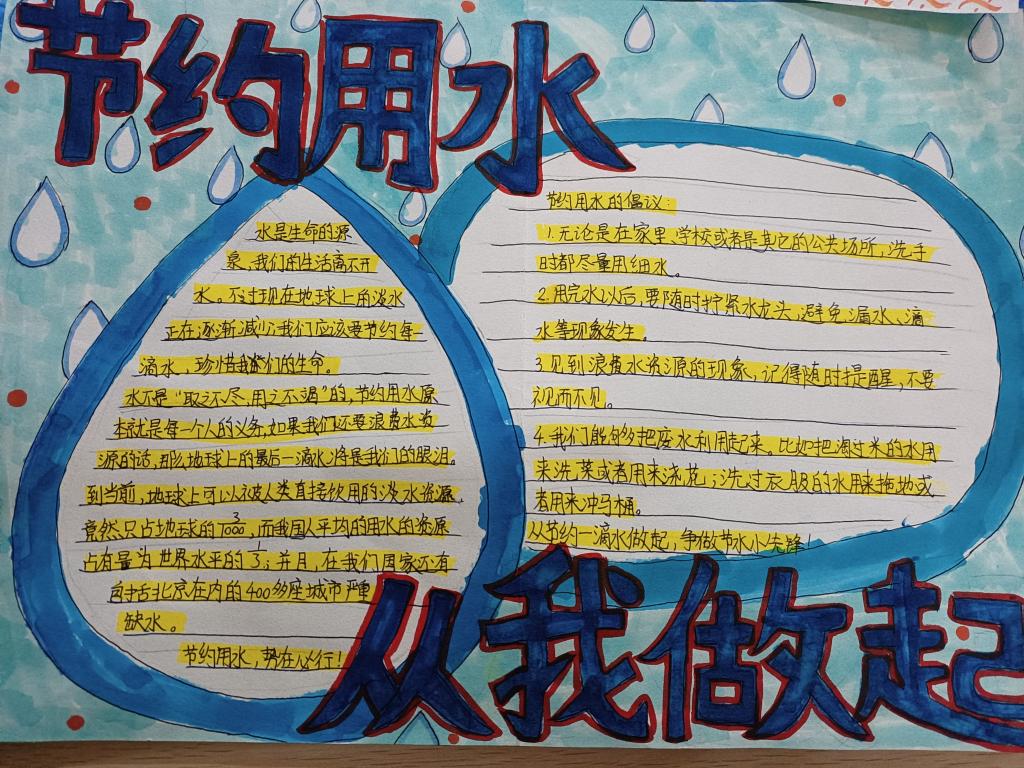 节约用水
水是生命的源
泉，我们的生活离不开
水。不过现在地球上的淡水
正在逐渐减少，我们应该要节约每一
滴水，珍惜我们的生命。
水不是“取之不尽，用之不竭”的，节约用水原
本就是每一个人的义务，如果我们还要浪费水资
源的话，那么地球上的最后一滴水将是我们的眼泪。
到当前，地球上可以被人类直接饮用的淡水资源，
竟然只占地球的3/1000，而我国人平均的用水的资源
占有量为世界水平的1/3；并且，在我们国家还有
包括北京在内的400多座城市严重
缺水。
节约用水，势在必行！
节约用水的倡议：
1.无论是在家里、学校或者是其它的公共场所，洗手
时都尽量用细水。
2.用完水以后，要随时拧紧水龙头，避免漏水、滴
水等现象发生。
3.见到浪费水资源的现象，记得随时提醒，不要
视而不见。
4.我们能够把废水利用起来，比如把淘过米的水用
来洗菜或者用来浇花；洗过衣服的水用来拖地或
者用来冲马桶。
从节约一滴水做起，争做节水小先锋！
从我做起